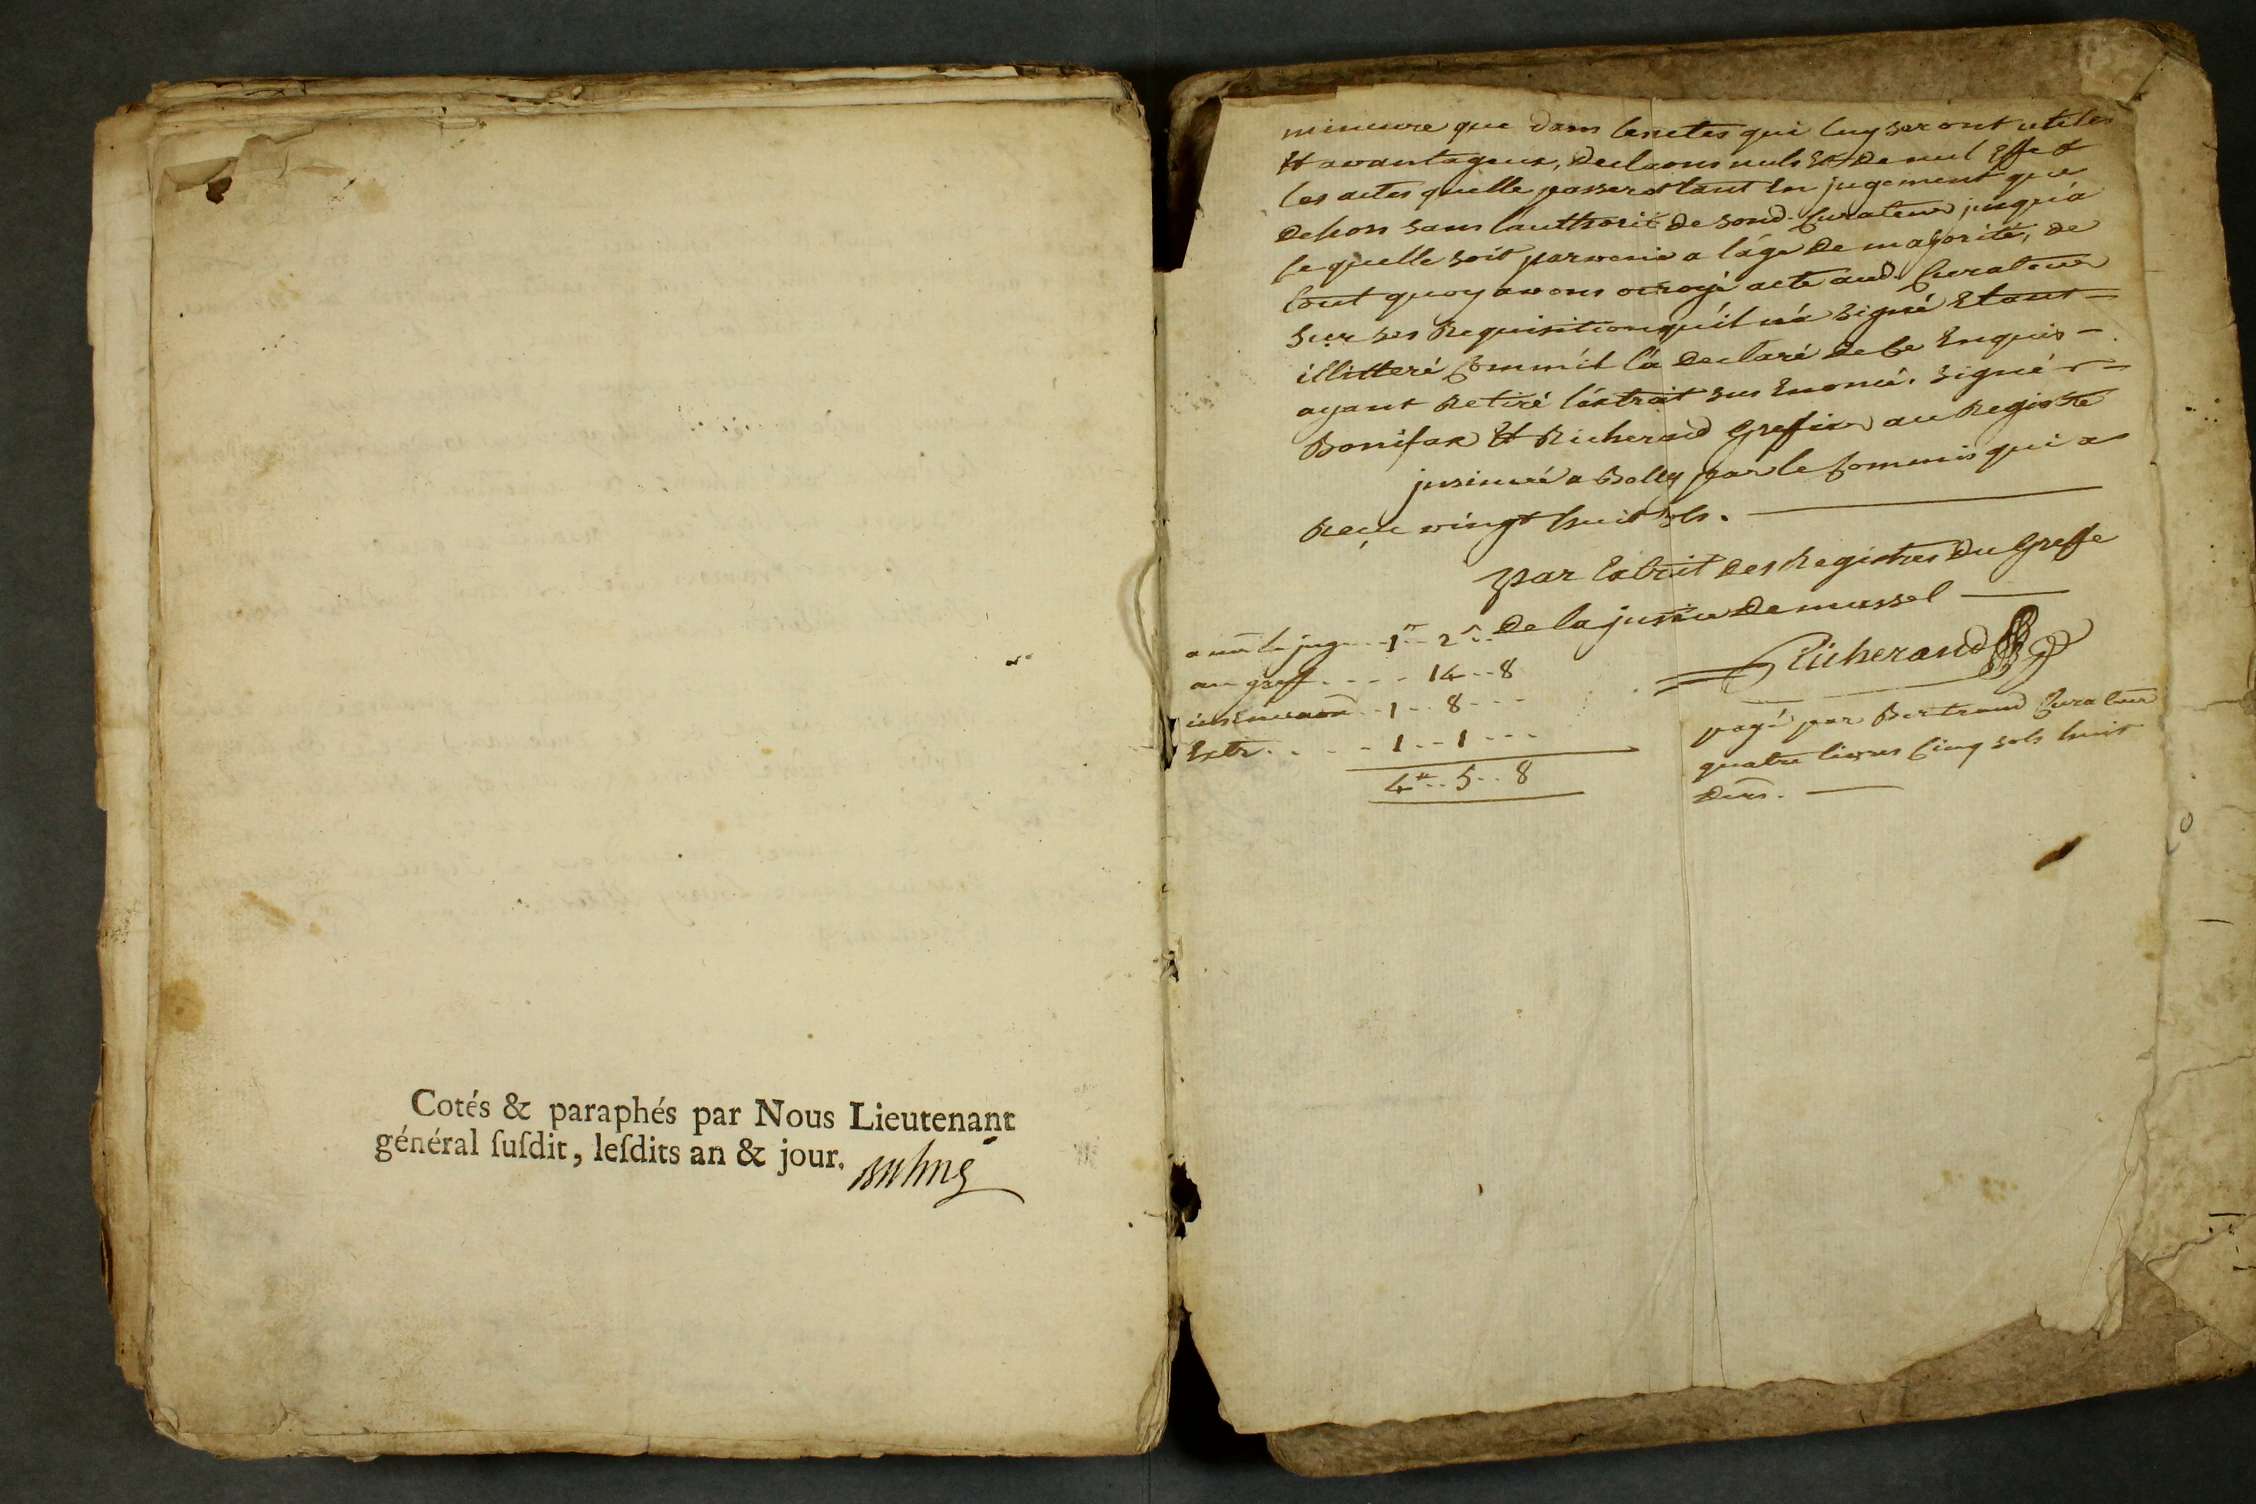 Cotés & paraphés par Nous Lieutenant
général ſuſdit, leſdits an & jour.
mineure que dans les actes qui luy seront utiles
Et avantageux, declarons nuls Et de nul Effet
les actes quelle passerat tant En jugement que
dehors sans l'authorité de sond. Curateur jusqu'à
ce quelle soit parvenue a l'áge de majorité, de
tout quoy avons octroyé acte aud. Curateur
sur ses Requisitions qu'il n'a signé Etant
illitteré Comm'il l'a declaré de ce Enquis
ayant Retiré l'extrait sus Enoncé. signé
Bonifax Et Richerand Greffier au Registre
jnsinué a Belley par le Commis qui a
Reçu vingt huit sols.
par Extrait des Registres du Greffe
de la justice de mussel
Richerand
a mr le jug. 1tt 2s
au greff 14 8
insinuaon 1 8
Extr. 1 1
4tt 5 8
payé par Bertrand Curateur
quatre livres Cinq sols huit
ders.